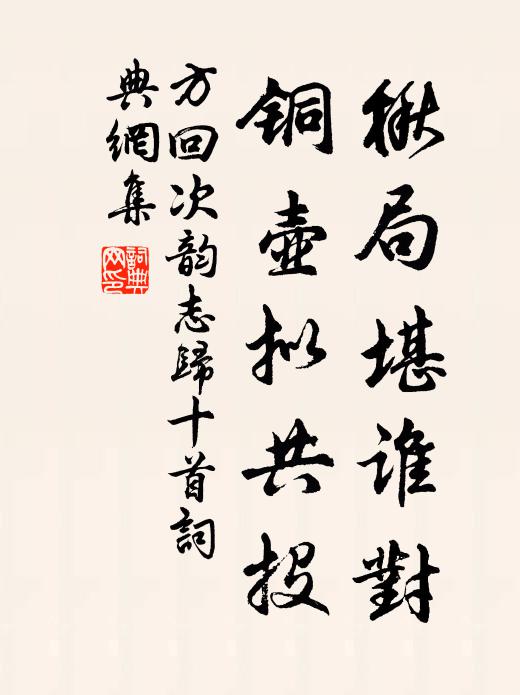 楸局堪谁對
铜壺拟共投
方回次韵志歸十首詞
典網集
詞典网印